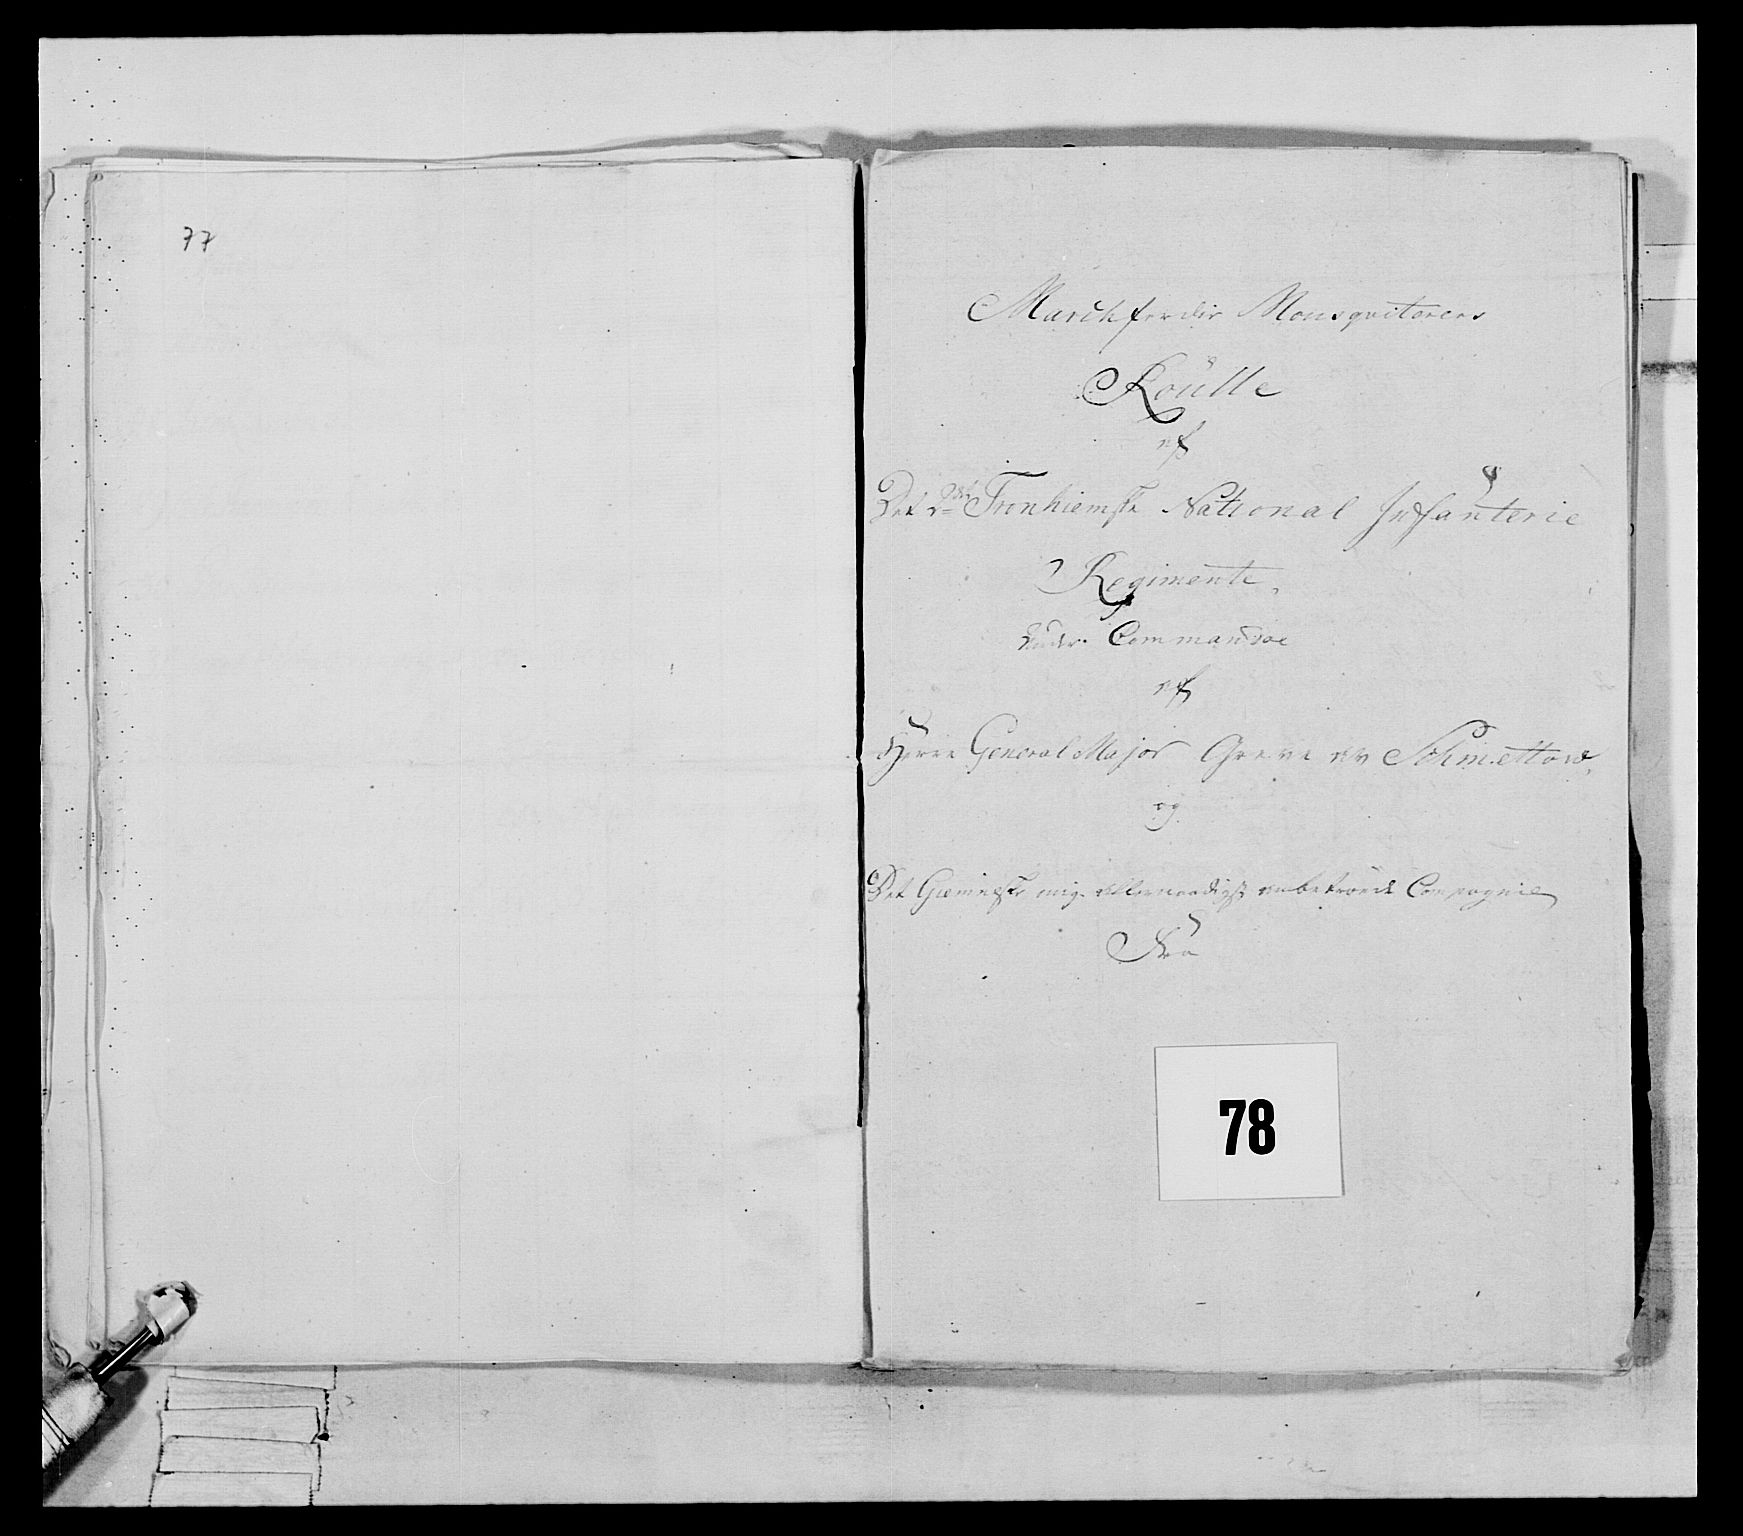 77
Marchferdig Mousqueterers
Roülle
af
Det 2det Tronhiemske National Infanterie
Regimente,
under Commandoe
af
Herre General Major Greve av Schmettow,
og
Det mig allernaadigst anbetroede Compagnie
Fra
78